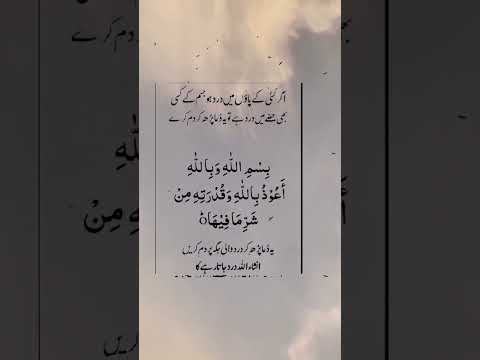 اگر کسی کے پاؤں میں درد ہو جسم کے کسی
بھی حصّے میں درد ہے تو یہ دُعا پڑھ کر دم کرے
بِسْمِ اللّٰهِ وَبِاللّٰهِ
أَعُوْذُ بِاللّٰهِ وَقُدْرَتِهٖ مِنْ
شَرِّ مَا فِيْهَا
یہ دُعا پڑھ کر درد والی جگہ پر دم کریں
انشاء اللہ درد جاتا رہے گا